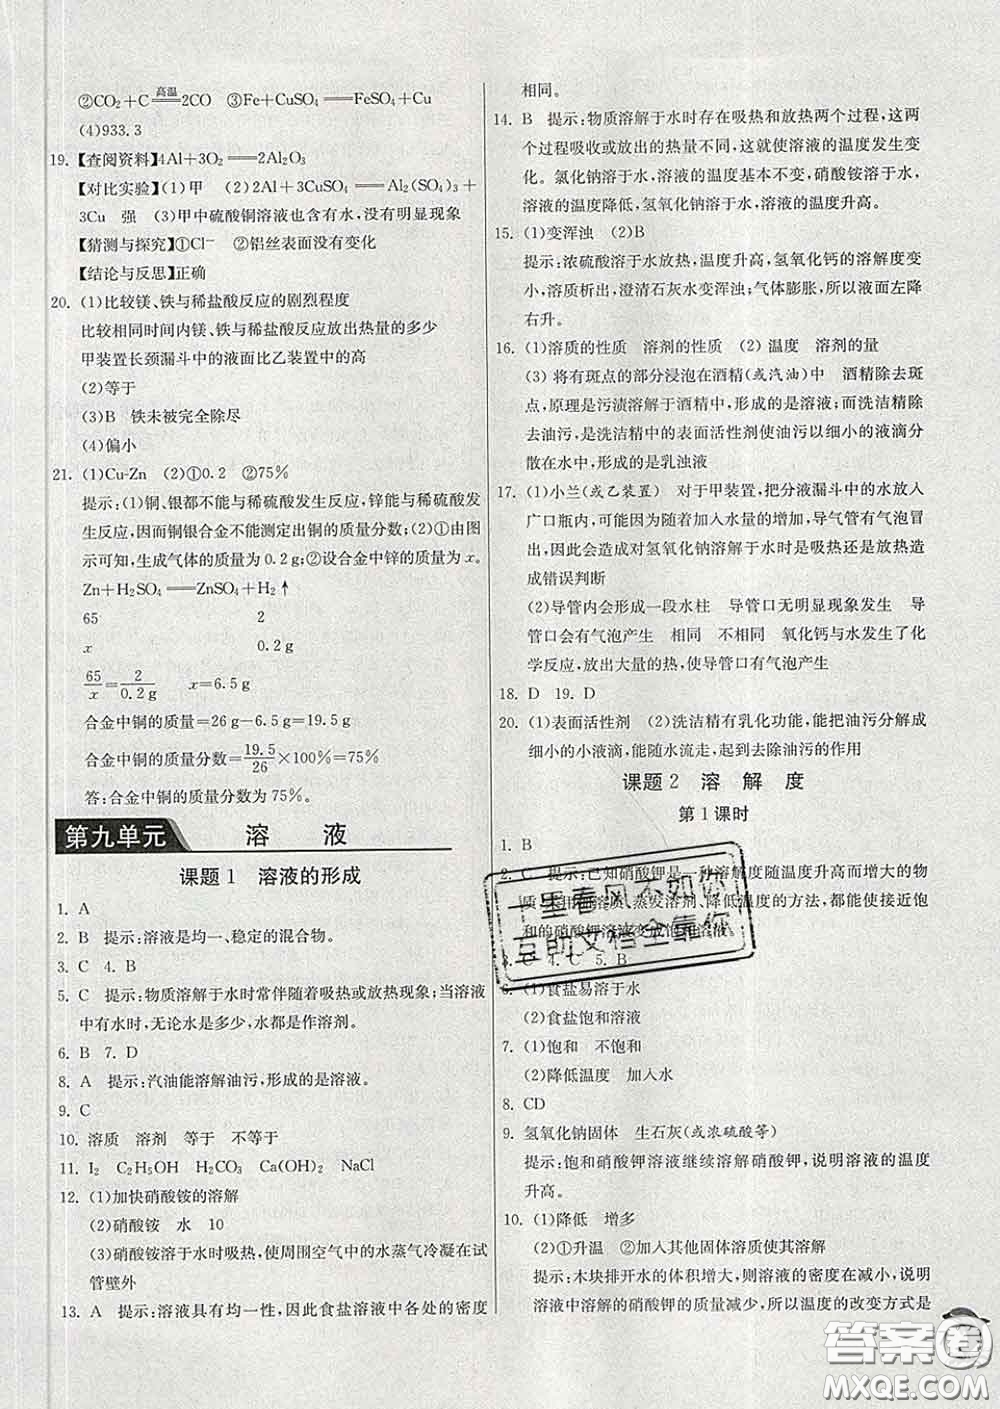 ②CO₂+C=高温=2CO ③Fe+CuSO₄══FeSO₄+Cu
(4)933.3
19.【查阅资料】4Al+3O₂══2Al₂O₃
【对比实验】(1)甲 (2)2Al+3CuSO₄══Al₂(SO₄)₃+
3Cu 强 (3)甲中硫酸铜溶液也含有水,没有明显现象
【猜测与探究】①Cl⁻ ②铝丝表面没有变化
【结论与反思】正确
20. (1)比较镁、铁与稀盐酸反应的剧烈程度
比较相同时间内镁、铁与稀盐酸反应放出热量的多少
甲装置长颈漏斗中的液面比乙装置中的高
(2)等于
(3)B 铁未被完全除尽
(4)偏小
21. (1)Cu-Zn (2)①0.2 ②75%
提示:(1)铜、银都不能与稀硫酸发生反应,锌能与稀硫酸
发生反应,因而铜银合金不能测定出铜的质量分数;(2)①由图
示可知,生成气体的质量为0.2 g;②设合金中锌的质量为 x。
Zn+H₂SO₄══ZnSO₄+H₂↑
65 2
x 0.2 g
65/x=2/0.2 g x=6.5 g
合金中铜的质量=26 g-6.5 g=19.5 g
合金中铜的质量分数=19.5/26×100%=75%
答:合金中铜的质量分数为75%。
第九单元 溶 液
课题1 溶液的形成
1. A
2. B 提示:溶液是均一、稳定的混合物。
3. C 4. B
5. C 提示:物质溶解于水时常伴随着吸热或放热现象;当溶液
中有水时,无论水是多少,水都是作溶剂。
6. B 7. D
8. A 提示:汽油能溶解油污,形成的是溶液。
9. C
10. 溶质 溶剂 等于 不等于
11. I₂ C₂H₅OH H₂CO₃ Ca(OH)₂ NaCl
12. (1)加快硝酸铵的溶解
(2)硝酸铵 水 10
(3)硝酸铵溶于水时吸热,使周围空气中的水蒸气冷凝在试
管壁外
13. A 提示:溶液具有均一性,因此食盐溶液中各处的密度
相同。
14. B 提示:物质溶解于水时存在吸热和放热两个过程,这两
个过程吸收或放出的热量不同,这就使溶液的温度发生变
化。氯化钠溶于水,溶液的温度基本不变,硝酸铵溶于水,
溶液的温度降低,氢氧化钠溶于水,溶液的温度升高。
15. (1)变浑浊 (2)B
提示:浓硫酸溶于水放热,温度升高,氢氧化钙的溶解度变
小,溶质析出,澄清石灰水变浑浊;气体膨胀,所以液面左降
右升。
16. (1)溶质的性质 溶剂的性质 (2) 温度 溶剂的量
(3) 将有斑点的部分浸泡在酒精(或汽油)中 酒精除去斑
点,原理是污渍溶解于酒精中,形成的是溶液;而洗洁精除
去油污,是洗洁精中的表面活性剂使油污以细小的液滴分
散在水中,形成的是乳浊液
17. (1)小兰(或乙装置) 对于甲装置,把分液漏斗中的水放入
广口瓶内,可能因为随着加入水量的增加,导气管有气泡冒
出,因此会造成对氢氧化钠溶解于水时是吸热还是放热造
成错误判断
(2)导管内会形成一段水柱 导管口无明显现象发生 导
管口会有气泡产生 相同 不相同 氧化钙与水发生了化
学反应,放出大量的热,使导管口有气泡产生
18. D 19. D
20. (1)表面活性剂 (2)洗洁精有乳化功能,能把油污分解成
细小的小液滴,能随水流走,起到去除油污的作用
课题2 溶 解 度
第1课时
1. B
2. C 提示:已知硝酸钾是一种溶解度随温度升高而增大的物
质,采用加溶质、蒸发溶剂、降低温度的方法,都能使接近饱
和的硝酸钾溶液变成饱和溶液
3. C 4. C 5. B
6. (1)食盐易溶于水
(2)食盐饱和溶液
7. (1)饱和 不饱和
(2)降低温度 加入水
8. CD
9. 氢氧化钠固体 生石灰(或浓硫酸等)
提示:饱和硝酸钾溶液继续溶解硝酸钾,说明溶液的温度
升高。
10. (1)降低 增多
(2)①升温 ②加入其他固体溶质使其溶解
提示:木块排开水的体积增大,则溶液的密度在减小,说明
溶液中溶解的硝酸钾的质量减少,所以温度的改变方式是
十里春风不如你
互助文档全靠你
答案圈
MXQE.COM